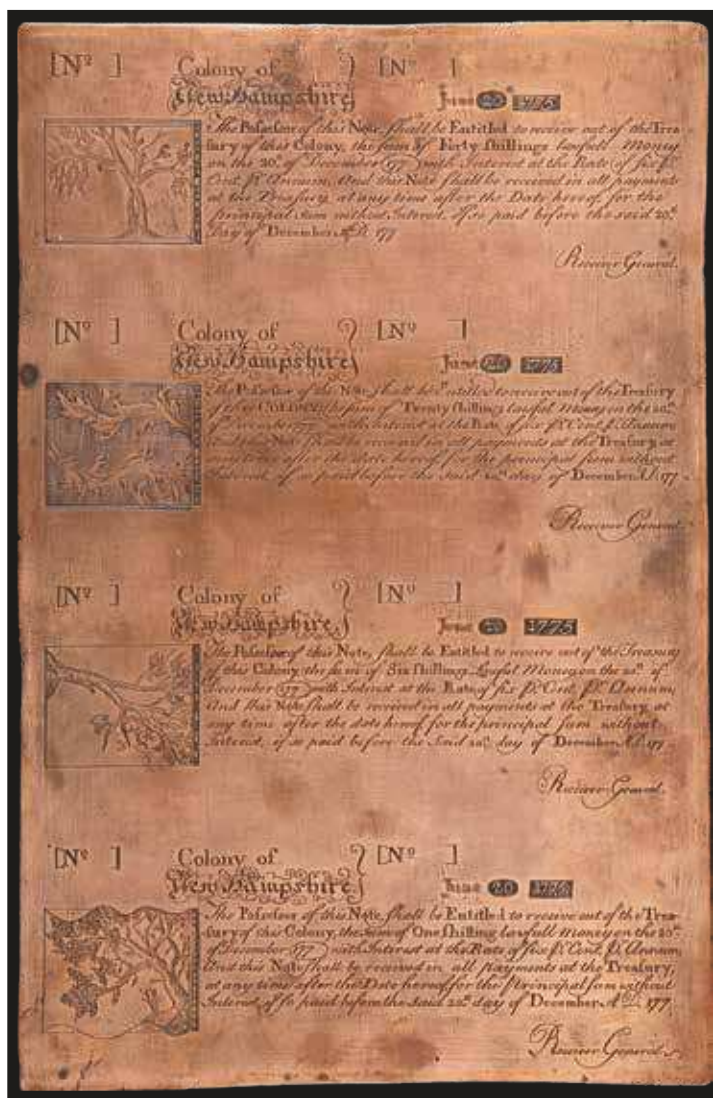 [Nº ] Colony of [Nº ]
New Hampshire June 20 1775
The Possessor of this Note, shall be Entitled to receive out of the Trea-
sury of this Colony, the sum of Forty shillings lawfull Money
on the 20th of December 177 with Interest at the Rate of six pr.
Cent, pr. Annum, And this Note shall be received in all payments
at the Treasury, at any time after the Date hereof, for the
principal sum without Interest, if so paid before the said 20th
day of December, A.D. 177
Receiver General.
[Nº ] Colony of [Nº ]
New Hampshire June 20 1775
The Possessor of the Note, shall be Entitled to receive out of the Treasury
of this COLONY, the sum of Twenty shillings lawful Money on the 20th
of December 177 with Interest at the Rate of six pr. Cent. pr. Annum
And this Note shall be received in all payments at the Treasury, at
any time after the date hereof for the principal sum without
Interest, if so paid before the said 20th day of December A.D. 177
Receiver General.
[Nº ] Colony of [Nº ]
New Hampshire June 20 1775
The Possessor of this Note, shall be Entitled to receive out of the Treasury
of this Colony, the sum of Six shillings Lawful Money on the 20th of
December 177 with Interest at the Rate of six pr. Cent, pr. Annum,
And this Note shall be received in all payments at the Treasury, at
any time after the date hereof for the principal sum without
Interest, if so paid before the said 20th day of December A.D. 177
Receiver General.
[Nº ] Colony of [Nº ]
New Hampshire June 20 1775
The Possessor of this Note, shall be Entitled to receive out of the Trea-
sury of this Colony, the sum of One shilling Lawfull Money on the 20th
of December 177 with Interest at the Rate of six pr. Cent, pr. Annum,
And this Note shall be received in all payments at the Treasury,
at any time after the Date hereof for the Principal sum without
Interest, if so paid before the said 20th day of December A.D. 177
Receiver General.